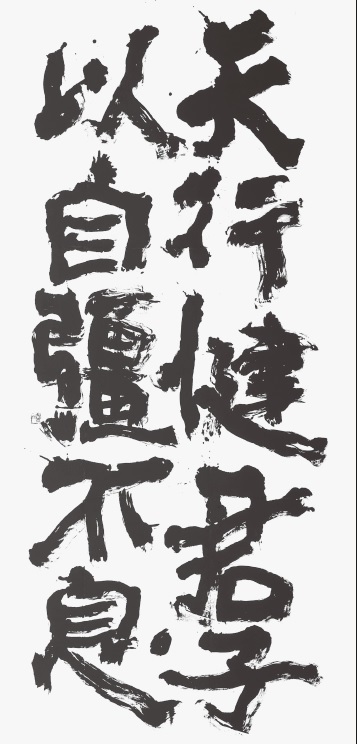 天行健君子
以自彊不息